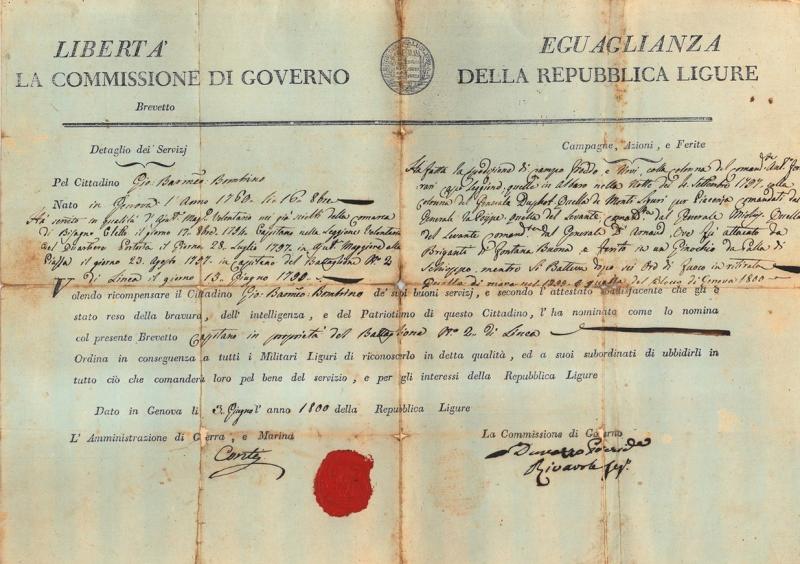 LIBERTA' EGUAGLIANZA
LA COMMISSIONE DI GOVERNO DELLA REPUBBLICA LIGURE
Brevetto
Detaglio dei Servizj
Pel Cittadino Gio. Barmeo Bombino
Nato in Genova l'Anno 1760 li 16
Ha servito in qualità d' Volontario ne' più scielti della comarca
di Bisagno Eletto il giorno 17. 1794. Capitano nella Legione Volontaria
del Quartiere Portoria il Giorno 28. Luglio 1797. in Maggiore alla
Piazza il giorno 23. Agosto 1797. in Capitano del Battaglione No 2
di Linea il giorno 13. Giugno 1798
Campagne, Azioni, e Ferite
Ha fatta la spedizione di campo Freddo e Novi, colla colonna del
quello in Albaro nella Notte dei 4. Settembre 1797. colla
colonna del Generale Duphot. Quella de Monti Liguri per Piacenza comandati dal
Generale la Poype. Quella del Levante, dal Generale Quella
del Levante dal Generale Arnaud. Ove fu attaccato da
Briganti di Fontana Buona e ferito in un Ginocchio da Palla di
mentre si Batteva dopo sei Ore di Fuoco in ritirata
Quella di nel 1799. e quella del Blocco di Genova 1800
Volendo ricompensare il Cittadino Gio. Barmeo Bombino de' suoi buoni servizj, e secondo l'attestato soddisfacente che gli è
stato reso della bravura, dell' intelligenza, e del Patriotismo di questo Cittadino, l'ha nominato come lo nomina
col presente Brevetto Capitano in proprietà del Battaglione No 2. di Linea
Ordina in conseguenza a tutti i Militari Liguri di riconoscerlo in detta qualità, ed a suoi subordinati di ubbidirli in
tutto ciò che comanderà loro pel bene del servizio, e per gli interessi della Repubblica Ligure
Dato in Genova li 3. Giugno l' anno 1800 della Repubblica Ligure
L' Amministrazione di Guerra, e Marina
Conte
La Commissione di Governo